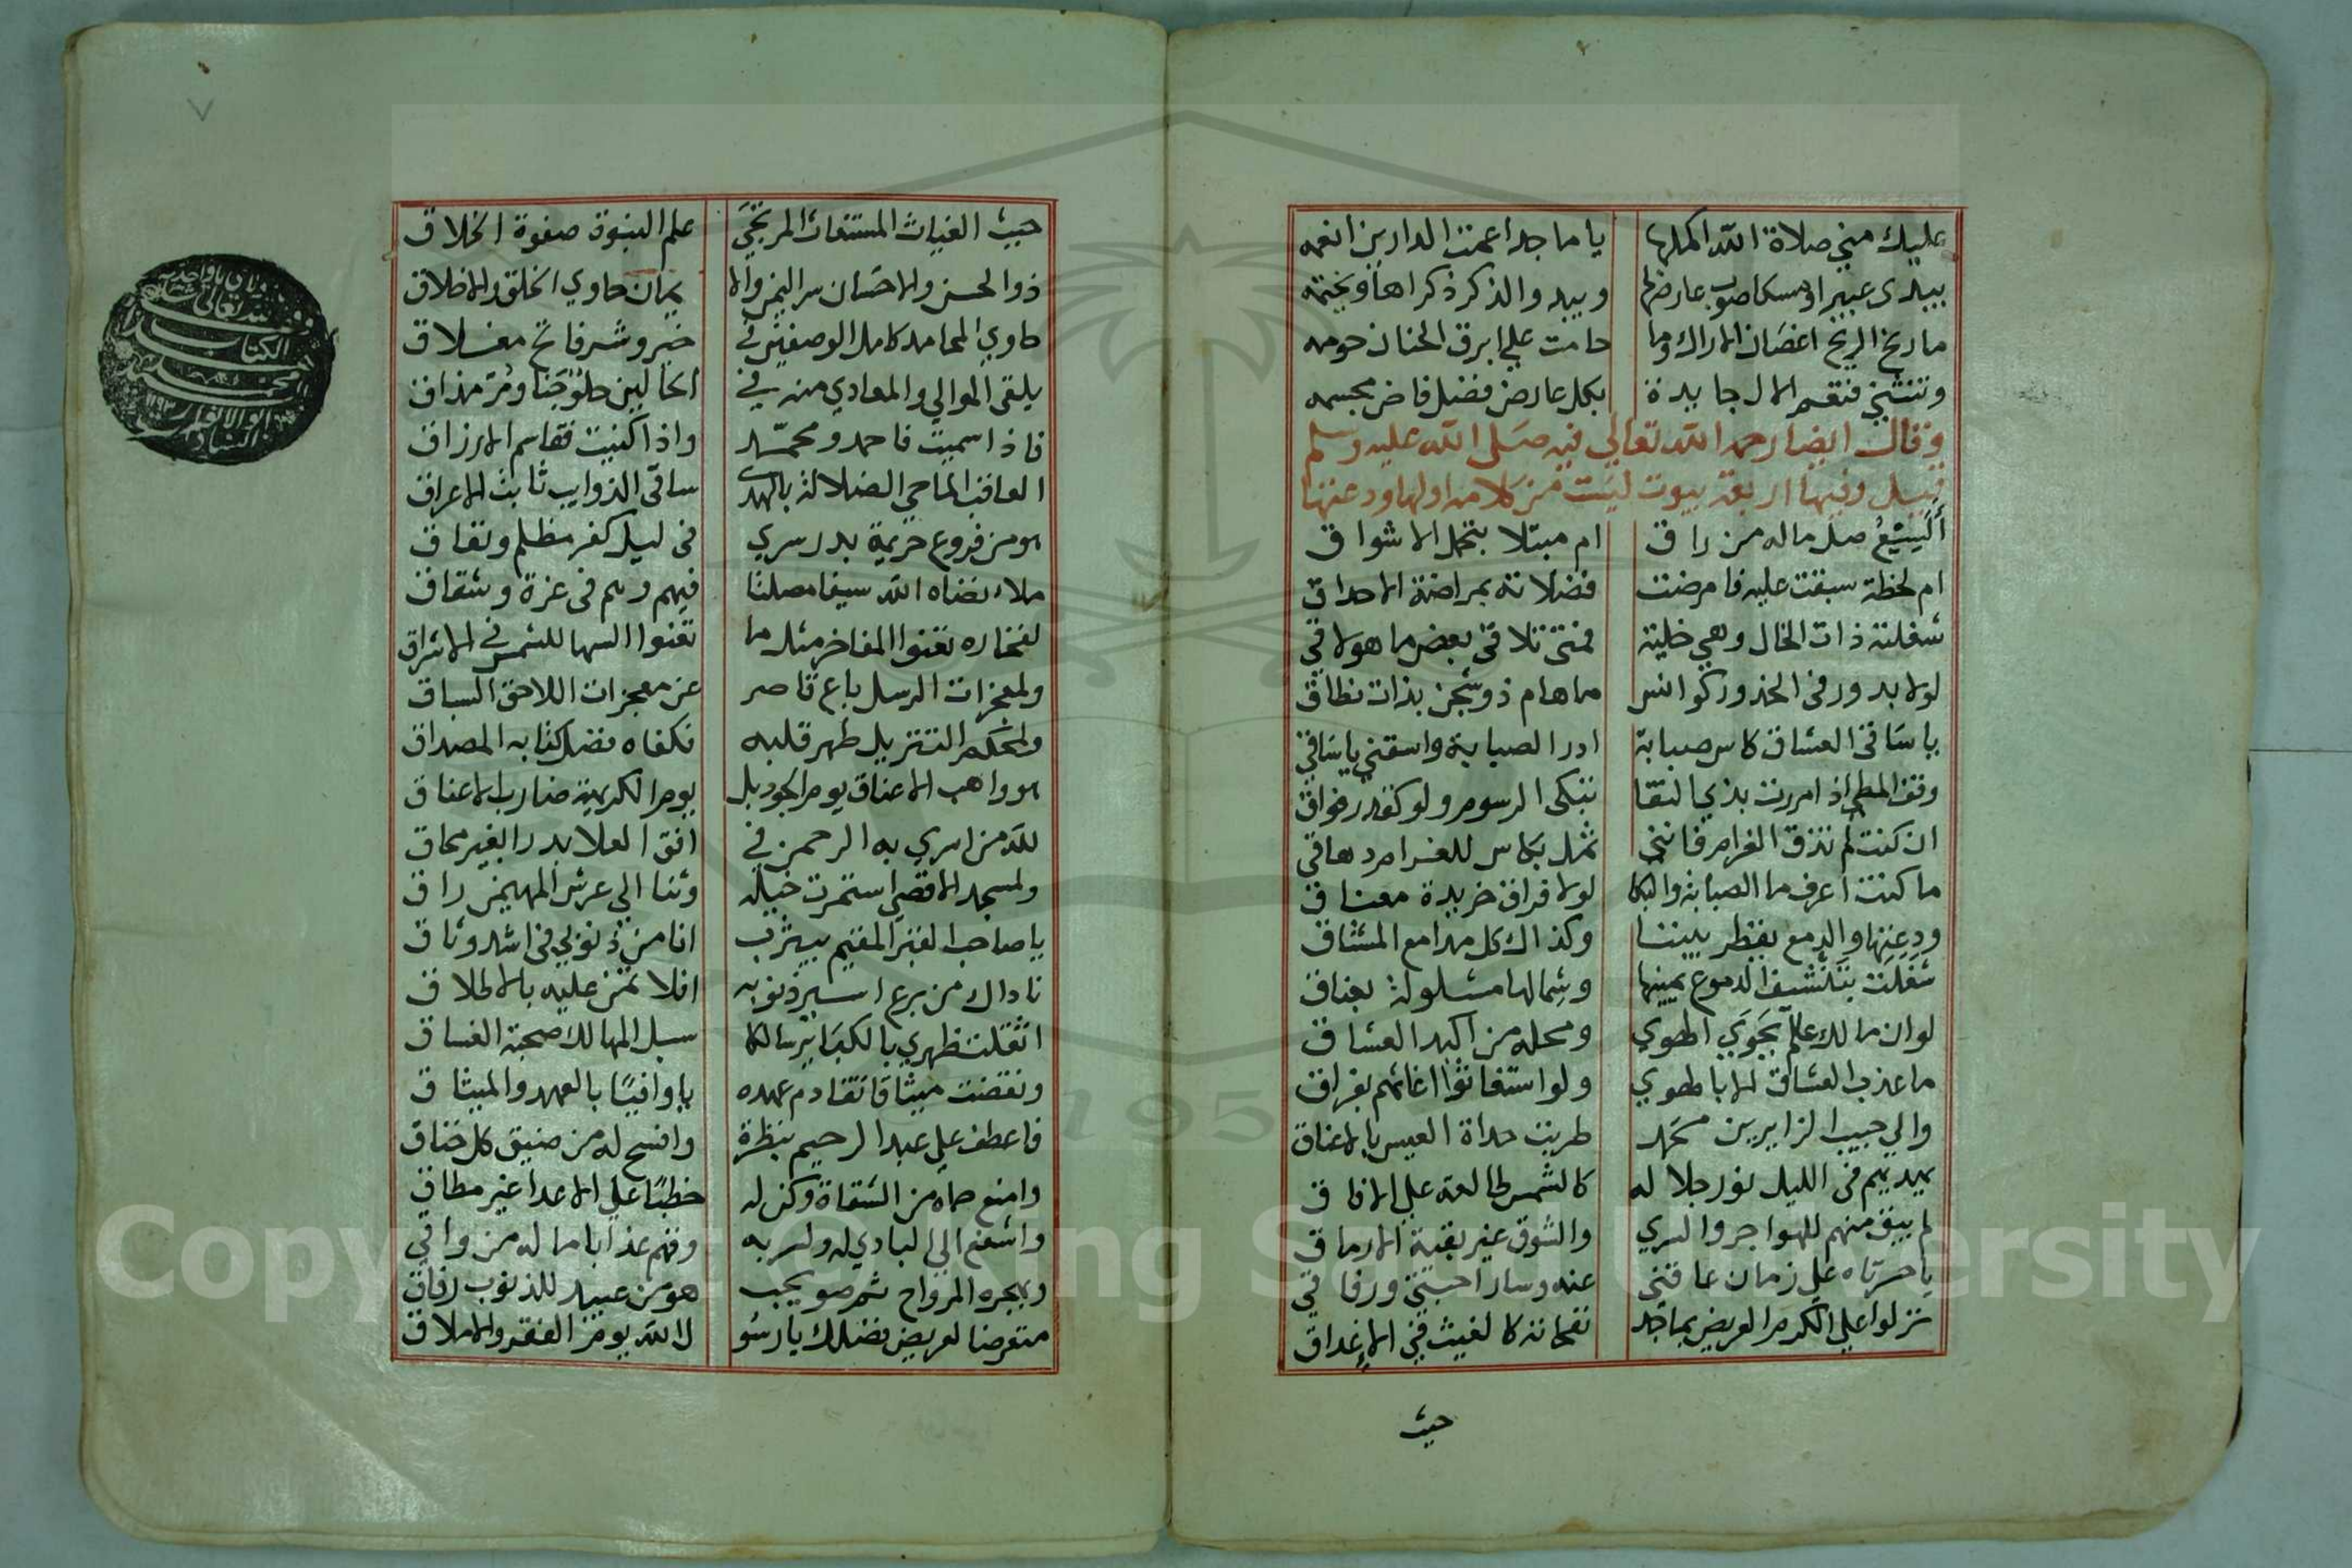 عليك مني صلاة الله اكملها يا ماجدا عمت الدارين انعمه
يبدى عبيرا ومسكا صوب عارضها ويبدو الذكر ذكراها ويختمه
ما رنح الريح اغصان الاراك وما حامت علي ابرق الحنان حومه
وتنثني فتعم الال جايدة بكل عارض فضل فاض مجسمه
وقال ايضا رحمه الله تعالي فيه صلى الله عليه وسلم
قيل وفيها اربعة بيوت ليست من كلامه اولها ودعتها
ألسيع صل ماله من راق ام مبتلا بتحمل الاشواق
ام لحظة سبقت عليه فامرضت فضلاته بمراضة الاحداق
شغلته ذات الخال وهي خلية فمتى تلاقى بعض ما هو لاقي
لولا بدور فى الخدور كوانس ما هام ذو شجن بذات نطاق
يا ساقى العشاق كاس صبابة ادر الصبابة واسقني يا ساقي
وقف المطي اذا مررت بذي النقا نبكى الرسوم ولو كقدر فواق
ان كنت لم تذق الغرام فانني ثمل بكاس للغرام دهاقي
ما كنت اعرف ما الصبابة والبكا لولا فراق خريدة معناق
ودعتها والدمع يقطر بيننا وكذاك كل مدامع المشتاق
شغلت بتنشيف الدموع يمينها وشمالها مشلولة بعناق
لو ان مالك علم بجوي الهوي ومحله من اكبد العشاق
ما عذب العشاق الا بالهوي ولو استغاثوا اغاثهم بفراق
والي حبيب الزايرين محمد طربت حداة العيس بالاعناق
يهديهم فى الليل نور جلاله كالشمس طالعة علي الافاق
لم يبق منهم للهواجر والسري والشوق غير بقية الارماق
يا حسرتاه علي زمان عاقنى عنه وسار احبتى ورفاقي
نزلوا علي الكرم العريض بماجد نفحاته كالغيث في الاغداق
حيث
٧
حيث الغياث المستغاث المرتجي علم النبوة صفوة الخلاق
ذو الحسن والاحسان سر اليمن والا يمان حاوي الخلق والاخلاق
حاوي المحامد كامل الوصفين في خير وشر فاتح مغلاق
يلقى الموالي والمعادي منه في الحالين حلو جنا ومر مذاق
فاذا سميت فاحمد ومحمد واذا كنيت فقاسم الارزاق
العاقب الماحي الضلالة بالهدى ساقى الذوايب ثابت الاعراق
هو من فروع خزيمة بدر سري فى ليل كفر مظلم ونفاق
ملا نضاه الله سيفا مصلتا فيهم وهم فى عزة وشقاق
لفخاره تعنوا المفاخر مثل ما تعنوا السها للشمس في الاشراق
ولمعجزات الرسل باع قاصر عن معجزات اللاحق السباق
ولمحكم التنزيل طهر قلبه فكفاه فضل كتابه المصداق
هو واهب الاعناق يوم الجود بل يوم الكريهة ضارب الاعناق
لله من اسري به الرحمن في افق العلا بدرا بغير محاق
ولمسجد الاقصي استمرت خيله وثنا الي عرش المهيمن راق
يا صاحب القبر المقيم بيثرب انا من ذنوبي فى اشد وثاق
ناداك من برع اسير ذنوبه افلا تمنن عليه بالاطلاق
اثقلت ظهري بالكباير سالكا سبل المهالك صحبة الفساق
ونقضت ميثاقا تقادم عهده يا وافيا بالعهد والميثاق
فاعطف علي عبد الرحيم بنظرة وافسح له من ضيق كل خناق
وامنع حماه من الشقاة وكن له خطبا علي الاعدا غير مطاق
واشفع الى البادي له ولسربه وقهم عذابا ماله من واقي
وبهجره المرواح ثم صويحب هو من عبيد للذنوب رقاق
متعرضا لعريض فضلك يا رسو ل الله يوم الفقر والاملاق